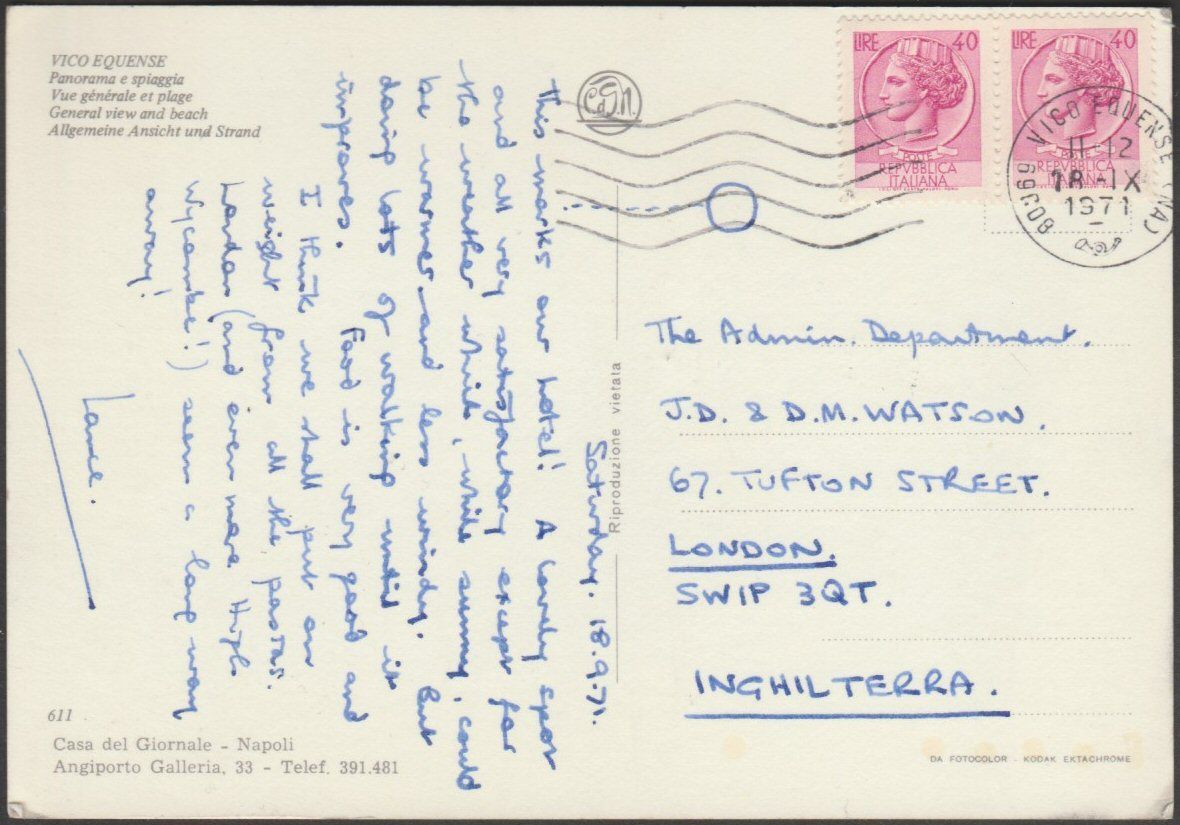 VICO EQUENSE
Panorama e spiaggia
Vue générale et plage
General view and beach
Allgemeine Ansicht und Strand
C.d.G.N.
LIRE 40
POSTE
REPVBBLICA
ITALIANA
LIRE 40
POSTE
REPVBBLICA
ITALIANA
80069 VICO EQUENSE (NA)
11-12
18-IX
1971
Saturday. 18.9.71.
This marks our hotel! A lovely spot
and all very satisfactory except for
the weather which, while sunny, could
be warmer and less windy. But
doing lots of walking until it
improves. Food is very good and
I think we shall put on
weight from all the pastas.
London (and even more High
Wycombe!) seem a long way
away!
Lance.
Riproduzione vietata
The Admin. Department.
J.D. & D.M. WATSON.
67. TUFTON STREET.
LONDON.
SW1P 3QT.
INGHILTERRA.
611
Casa del Giornale - Napoli
Angiporto Galleria, 33 - Telef. 391.481
DA FOTOCOLOR - KODAK EKTACHROME